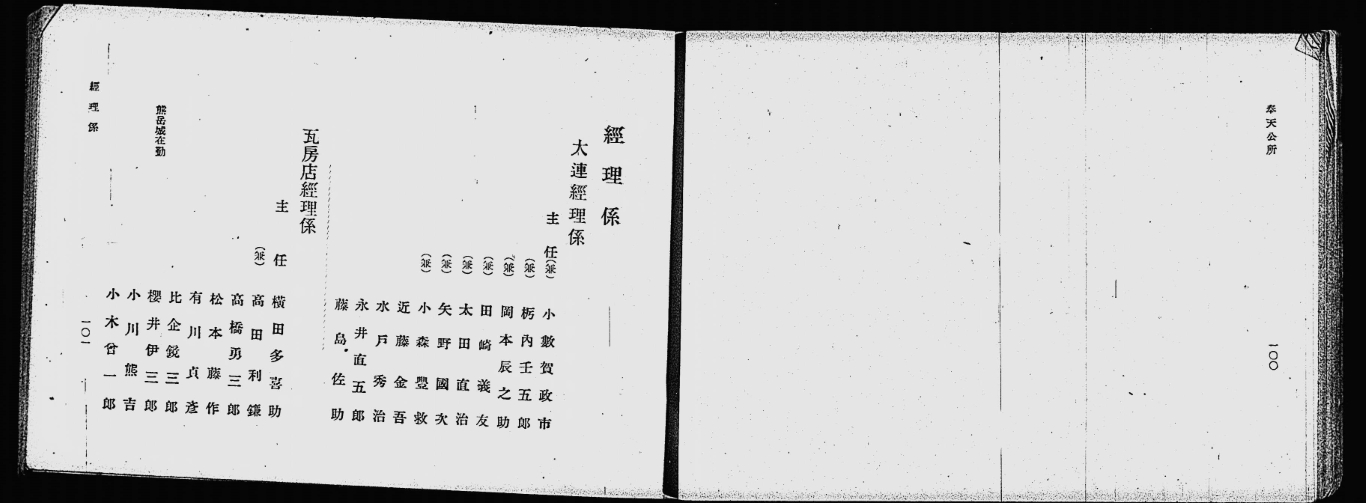 奉天公所
一〇〇
經理係
大連經理係
主任(兼) 小數賀政市
(兼) 栃內壬五郎
(兼) 岡本辰之助
(兼) 田崎義友
(兼) 太田直治
(兼) 矢野國次
(兼) 小森豐救
近藤金吾
水戶秀治
永井直五郎
藤島佐助
瓦房店經理係
主任 橫田多喜助
(兼) 高田利鎌
高橋勇三郎
松本藤作
有川貞彥
比企銳三郎
熊岳城在勤 櫻井伊三郎
小川熊吉
小木曾一郎
經理係
一〇一